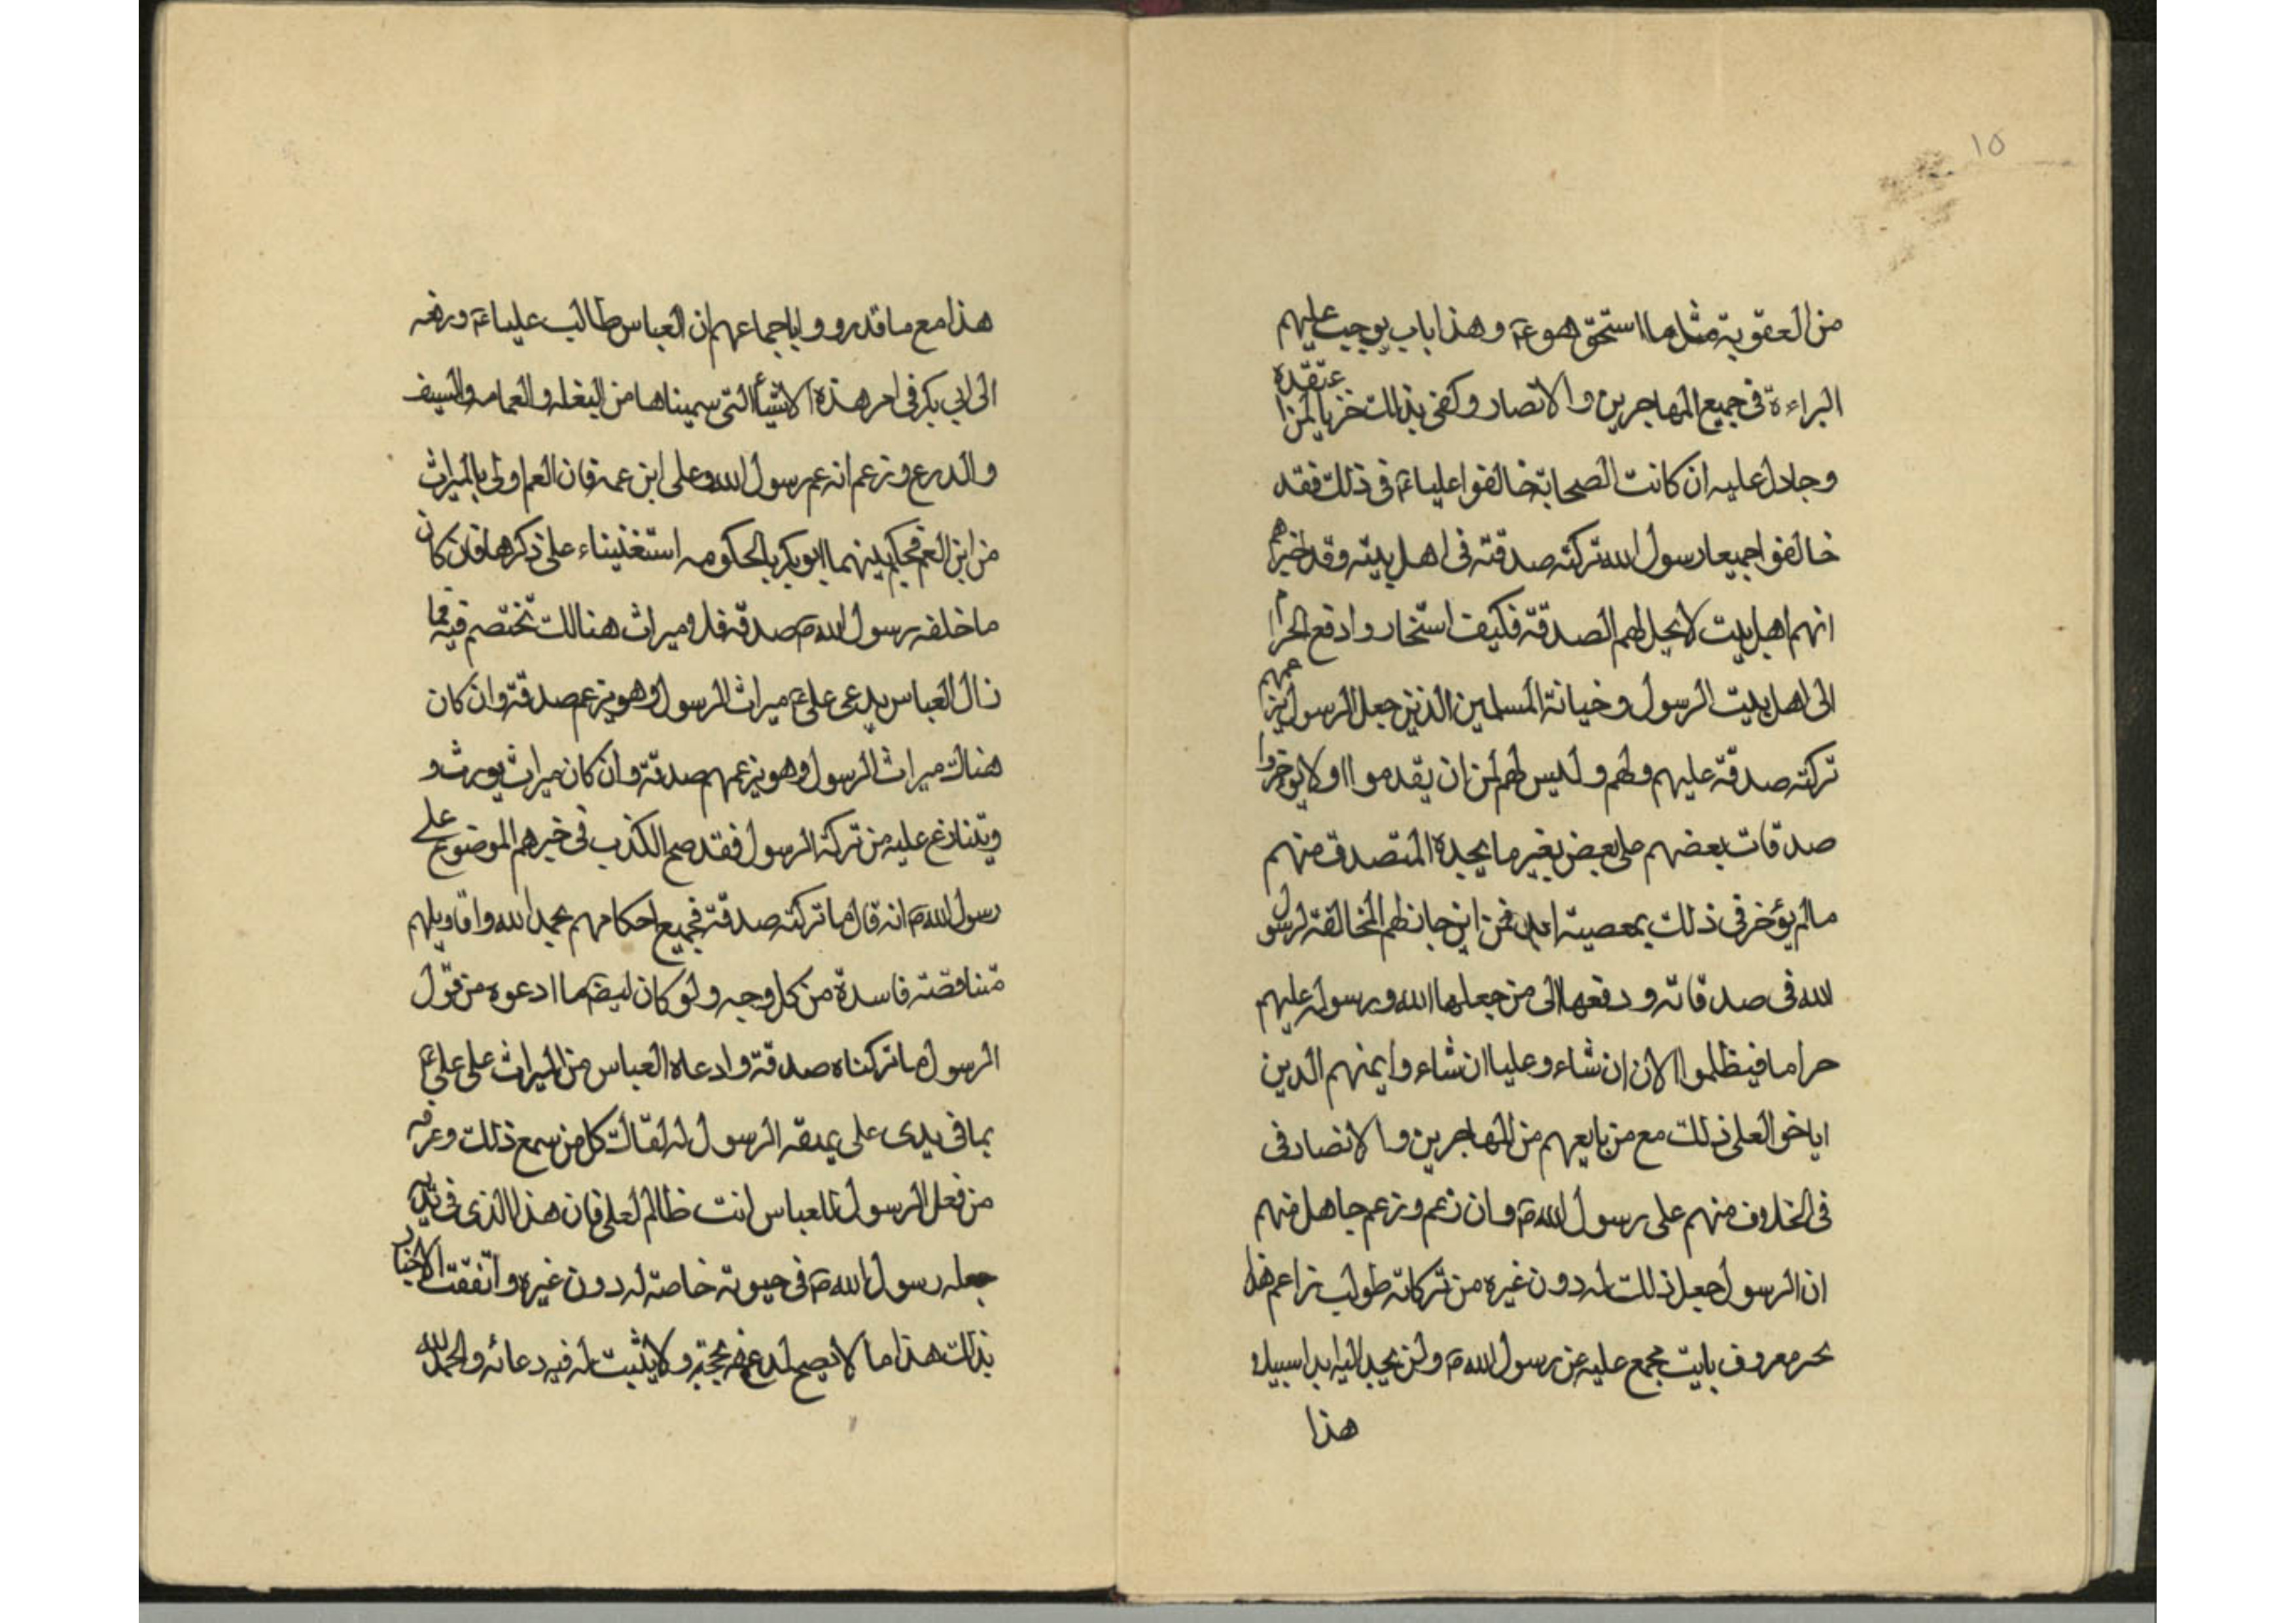 ١٥
من العقوبة مثل ما استحق هو عم وهذا باب يوجب عليهم
البراءة فى جميع المهاجرين والانصار وكفى بذلك خزيا لمن اعتقده
وجادل عليه ان كانت الصحابة خالفوا علياء عم فى ذلك فقد
خالفوا جميعا رسول الله تركته صدقته فى اهل بيته وقد اخبرهم
انهم اهل بيت لا يحل لهم الصدقة فكيف استخاروا دفع الحرام
الى اهل بيت الرسول وخيانة المسلمين الذين جعل الرسول بزعمهم
تركته صدقة عليهم ولهم وليس لهم لمن ان يقدموا او لا يوخروا
صدقات بعضهم على بعض بغير ما يجده المتصدق منهم
مالم يؤخر فى ذلك بمعصيته فمن اين جاز لهم المخالفة لرسول
الله فى صدقاته ودفعها الى من جعلها الله ورسوله عليهم
حراما فيظلموا الان ان شاء وعليا ان شاء وايمنهم الدين
اباخوا لعلى ذلك مع من بايعهم من المهاجرين والانصار فى
فى الخلاف منهم على رسول الله ص وان زعم وزعم جاهل منهم
ان الرسول جعل ذلك له دون غيره من تركاته طولب زاعم هذا
بخبر معروف بايت مجمع عليه عن رسول الله ص ولن يجد اليه ابدا سبيلا
هذا
هذا مع ما قد رووا باجماعهم ان العباس طالب علياء عم ورفعه
الى ابى بكر فى امر هذه الاشياء التى سميناها من البغله والعمامه والسيف
والدرع وزعم انه عم رسول الله وعلى ابن عمه فان العم اولى بالميراث
من ابن العم فحكم بينهما ابو بكر بالحكومه استغنيناء على ذكرها فان كان
ما خلفه رسول الله ص صدقة فلا ميراث هنالك تختصم فيه فما
نال العباس يدعى على عم ميراث الرسول وهو يزعم صدقة وان كان
هناك ميراث الرسول وهو يزعمهم صدقة وان كان ميراث يورث و
ويتنازع عليه من تركة الرسول فقد صح الكذب فى خبرهم الموضوع على
رسول الله ص انه قال ما تركته صدقة فجميع احكامهم بحمد الله واقاويلهم
متناقضته فاسدة من كل وجه ولو كان ليضم ما ادعوه من قول
الرسول ما تركناه صدقة وادعاه العباس من الميراث على على عم
بما فى يدى على الرسول له لقالت كل من سمع ذلك وعرفه
من فعل الرسول للعباس انت ظالم لعلى فان هذا الذى فى يديه
جعله رسول الله ص فى حيوته خاصة له دون غيره واتفقت الاخبار
بذلك هذا ما لا يصح لمدع فيه حجة ولا يثبت له فيه دعائه والحمد لله